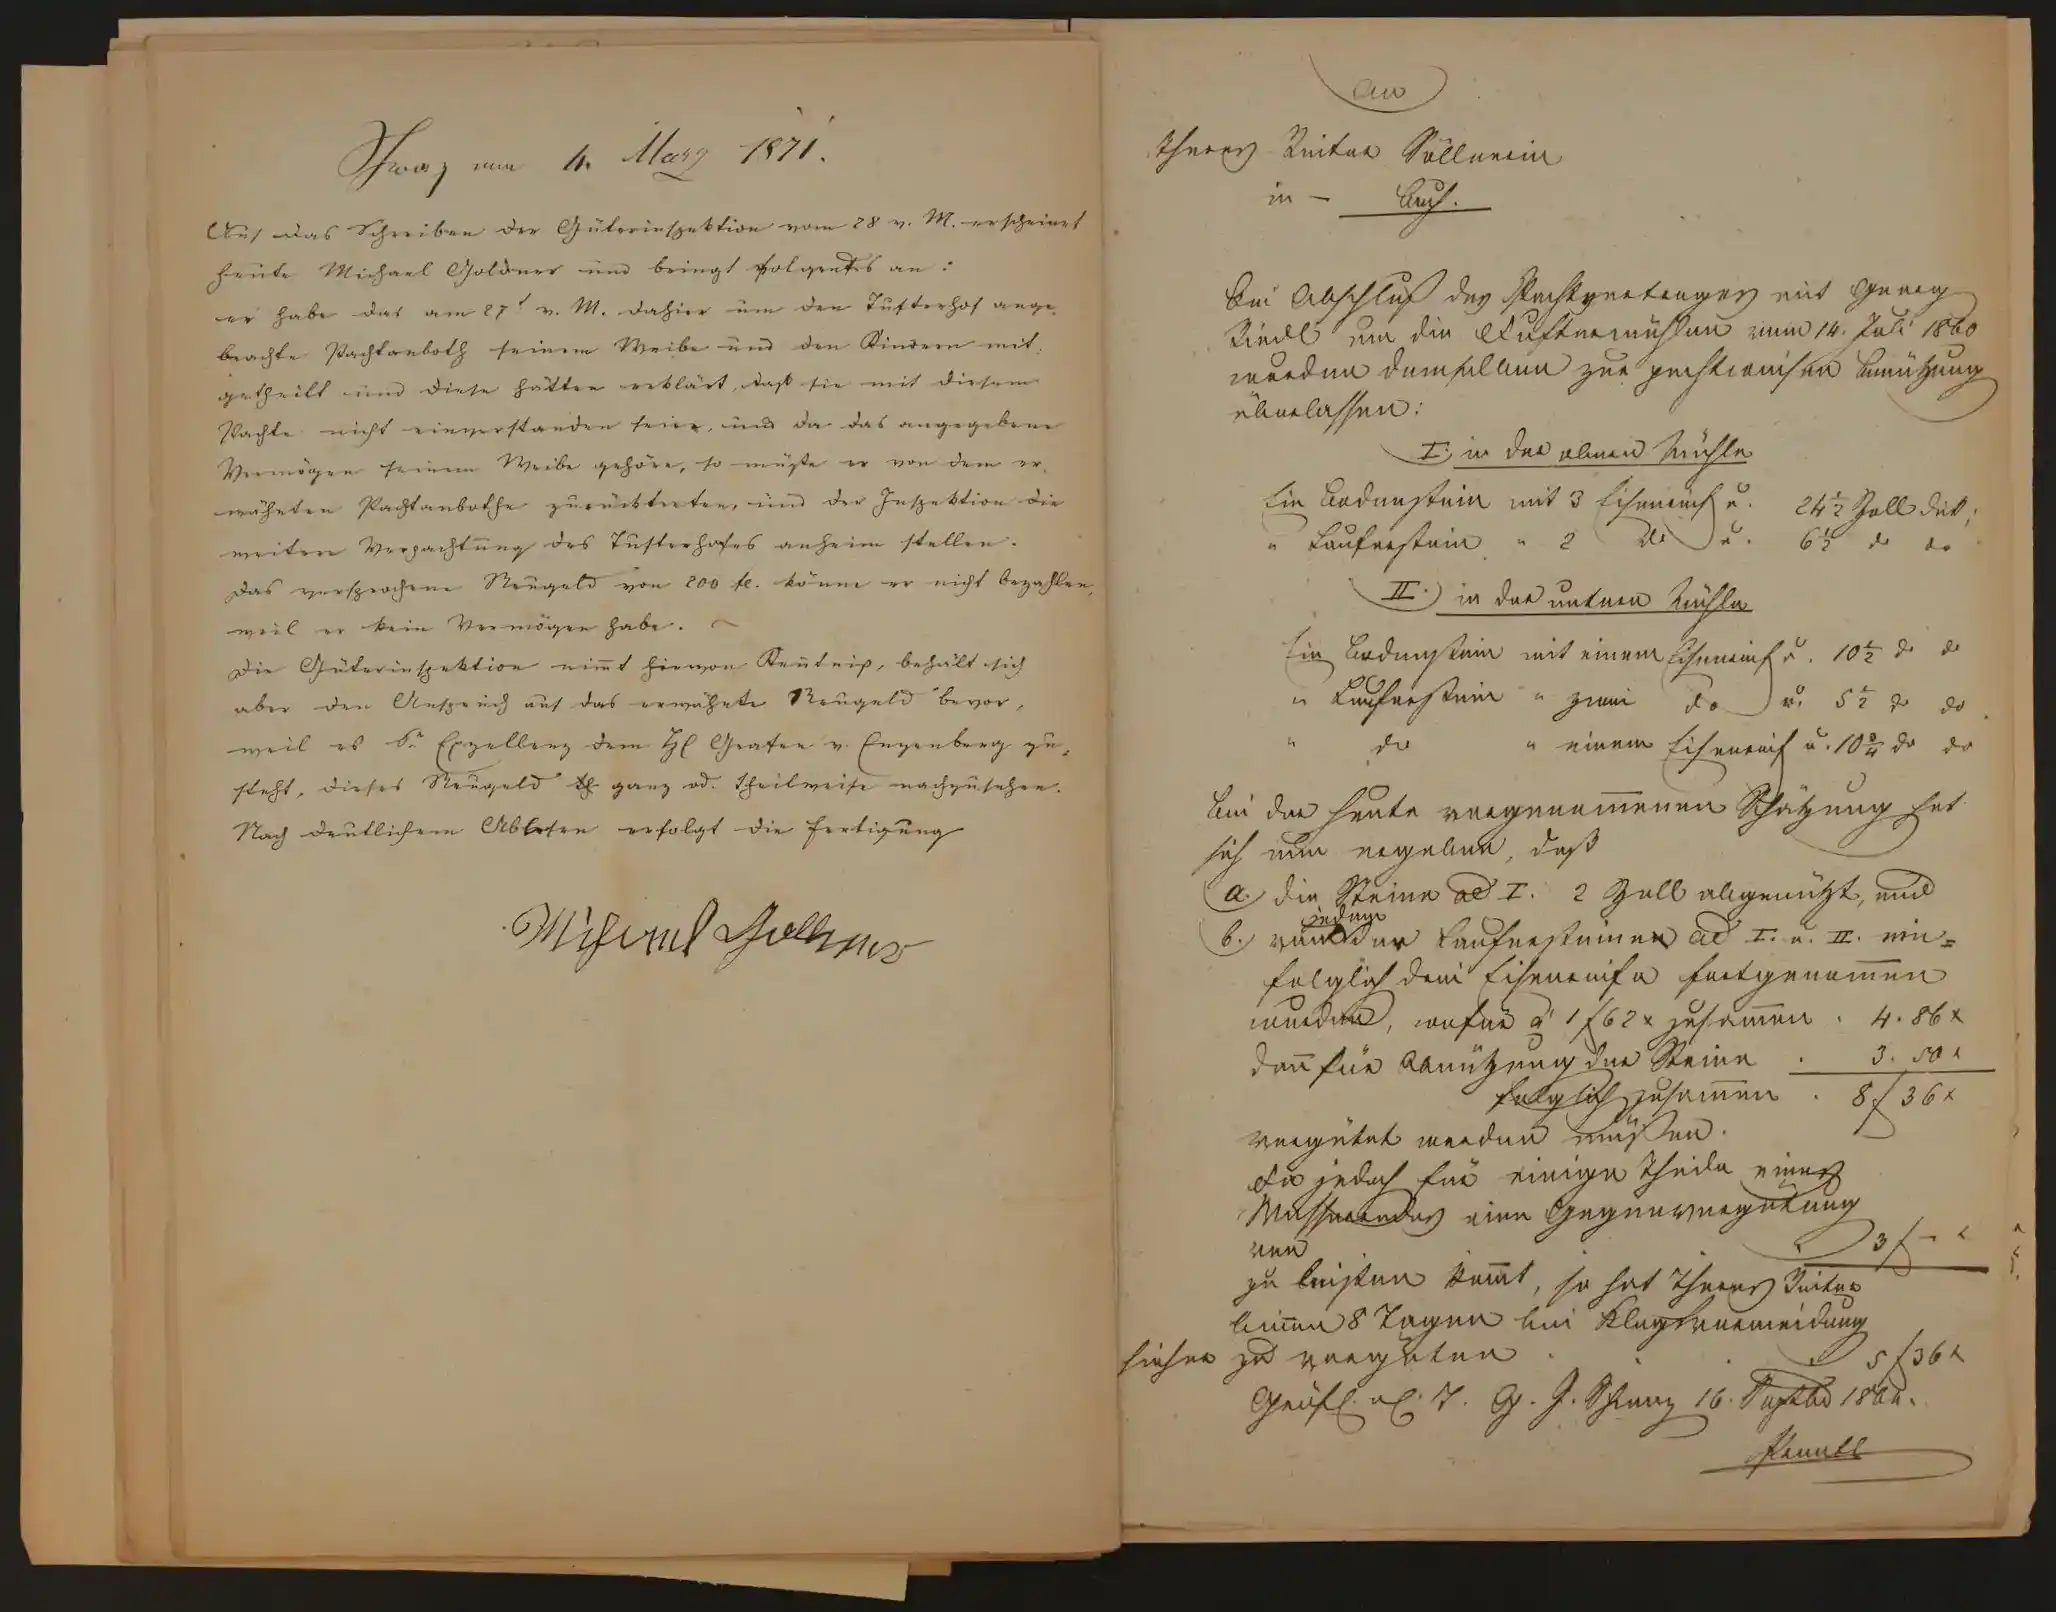 Schwaz am 4. März 1871.
Auf das Schreiben der Güterinspektion vom 28 v. M. erscheinet
heute Michael Goldner und bringt folgendes an:
er habe das am 27t v. M. dahier um den Tufterhof ange-
brachte Pachtanboth seinem Weibe und den Kindern mit-
getheilt und diese hätten erklärt, daß sie mit diesem
Pachte nicht einverstanden seien, und da das angegebene
Vermögen seinem Weibe gehöre, so müßte er von dem er-
wähnten Pachtanbothe zurücktreten, und der Inspektion die
weitere Verpachtung des Tufterhofes anheim stellen.
Das versprochene Reugeld von 200 fl. könne er nicht bezahlen,
weil er kein Vermögen habe.
Die Güterinspektion nimmt hievon Kenntniß, behält sich
aber den Anspruch auf das erwähnte Reugeld bevor,
weil es Sr Exzellenz dem H Grafen v. Enzenberg zu-
steht, dieses Reugeld ganz od. theilweise nachzusehen.
Nach deutlichem Ablesen erfolgt die Fertigung
Michael Gollner
An
Theres Reiter Söllnerin
in - Buch.
Bei Abschluß des Pachtvertrages mit Georg
Riedl um die Tuftnermühlen vom 14. Juli 1860
wurden demselben zur pachtweisen Benützung
überlassen:
I. in der obern Mühle
Ein Bodenstein mit 3 Eisenreif u. 24½ Zoll dick;
" Lauferstein " 2 do u. 6½ do do
II. in der untern Mühle
Ein Bodenstein mit einem Eisenreif u. 10½ do do
" Lauferstein " zwei do u. 5½ do do
" do " einem Eisenreif u. 10¾ do do
Bei der heute vorgenommenen Schätzung hat
sich nun ergeben, daß
a. die Steine ad I. 2 Zoll abgenützt, und
b. von jedem der Laufersteine ad I. u. II. ein=
folglich drei Eisenreife fortgenommen
wurden, wofür à 1 f 62 x zusammen . 4. 86 x
dann für Abnützung der Steine . 3. 50 "
folglich zusammen . 8 f 36 x
vergütet werden müssen.
Da jedoch für einige Theile eines
Wasserrades eine Gegenvergütung
von 3 f - "
zu leisten kommt, so hat Theres Reiter
binnen 8 Tagen bei Klagsvermeidung
hieher zu vergüten . 5 f 36 x
Gräfl. T. G. I. Schwaz 16. Septbr